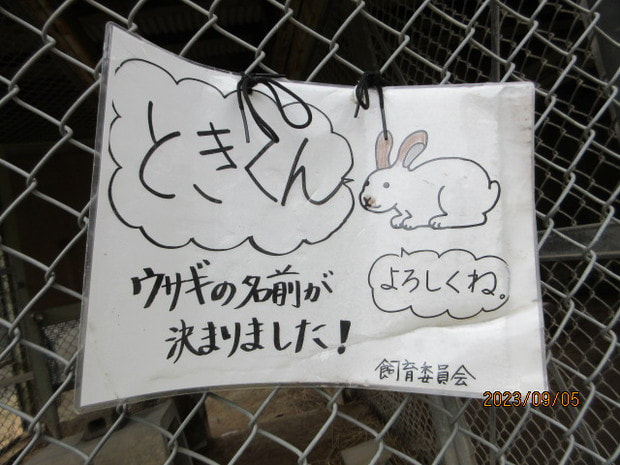 ときくん
ウサギの名前が
決まりました!
よろしくね。
飼育委員会
2023/09/05